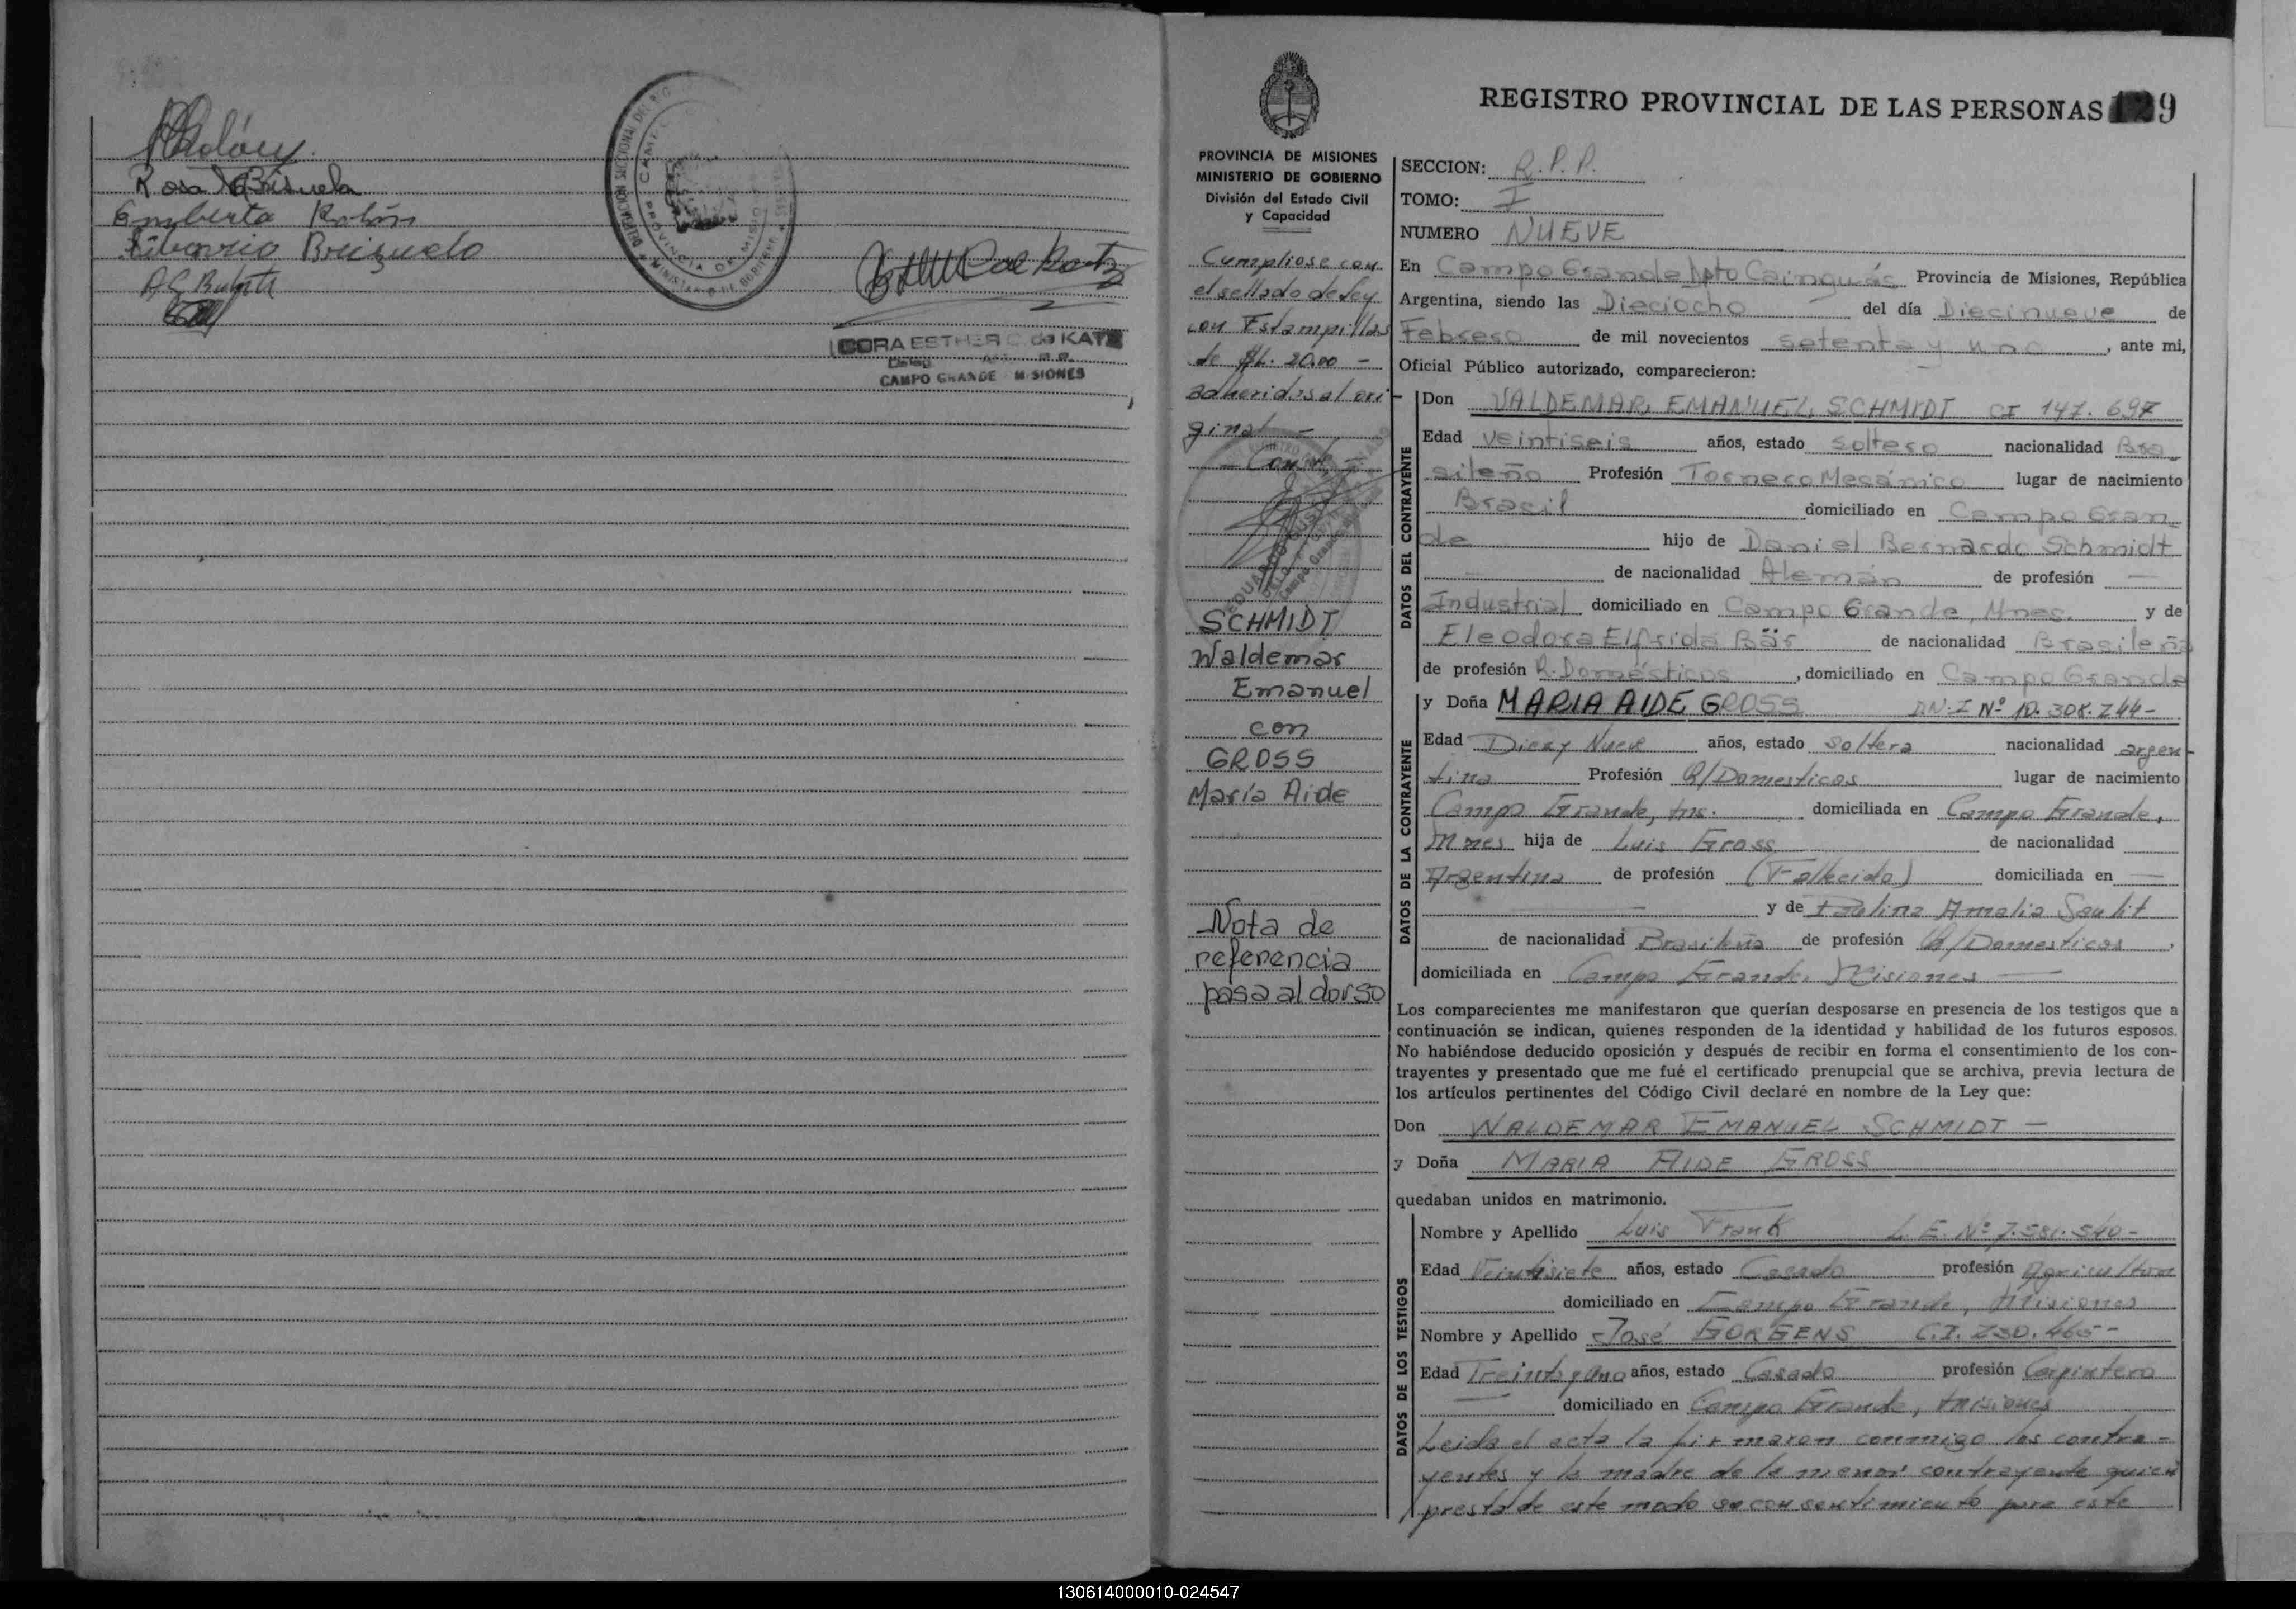 Rosa Brisuela
Emberta Rolón
Liborio Brizuelo
DELEGACION SECCIONAL DEL REG
PROVINCIA DE MISIONES
MINISTERIO DE GOBIERNO
CORA ESTHER C. de KATZ
CAMPO GRANDE - MISIONES
REGISTRO PROVINCIAL DE LAS PERSONAS 9
PROVINCIA DE MISIONES
MINISTERIO DE GOBIERNO
División del Estado Civil
y Capacidad
Cumpliose con
el sellado de ley
con Estampillas
de $L. 20.00 -
adheridas al ori-
ginal -
- Conste -
SCHMIDT
Waldemar
Emanuel
con
GROSS
María Aide
Nota de
referencia
pasa al dorso
SECCION: R.P.P.
TOMO: I
NUMERO NUEVE
En Campo Grande Dpto Cainguás Provincia de Misiones, República
Argentina, siendo las Dieciocho del día Diecinueve de
Febrero de mil novecientos setenta y uno, ante mi,
Oficial Público autorizado, comparecieron:
DATOS DEL CONTRAYENTE
Don VALDEMAR EMANUEL SCHMIDT CI 147.697
Edad veintiseis años, estado soltero nacionalidad Bra-
sileño Profesión Tornero Mecánico lugar de nacimiento
Brasil domiciliado en Campo Gran-
de hijo de Daniel Bernardo Schmidt
de nacionalidad Alemán de profesión —
Industrial domiciliado en Campo Grande, Mnes. y de
Eleodora Elfrida Bär de nacionalidad Brasileña
de profesión Q. Domésticos, domiciliado en Campo Grande
DATOS DE LA CONTRAYENTE
y Doña MARIA AIDE GROSS D.N.I Nº 10.308.244-
Edad Diez y Nueve años, estado Soltera nacionalidad argen-
tina Profesión Q/Domesticos lugar de nacimiento
Campo Grande, Ms. domiciliada en Campo Grande,
Mnes hija de Luis Gross de nacionalidad
Argentina de profesión (Fallecido) domiciliada en —
— y de Paulina Amalia Saulit
de nacionalidad Brasileña de profesión Q/Domesticos,
domiciliada en Campo Grande, Misiones —
Los comparecientes me manifestaron que querían desposarse en presencia de los testigos que a
continuación se indican, quienes responden de la identidad y habilidad de los futuros esposos.
No habiéndose deducido oposición y después de recibir en forma el consentimiento de los con-
trayentes y presentado que me fué el certificado prenupcial que se archiva, previa lectura de
los artículos pertinentes del Código Civil declaré en nombre de la Ley que:
Don WALDEMAR EMANUEL SCHMIDT —
y Doña MARIA AIDE GROSS
quedaban unidos en matrimonio.
DATOS DE LOS TESTIGOS
Nombre y Apellido Luis Frank L.E. Nº 7.581.540-
Edad Veintisiete años, estado Casado profesión Agricultor
domiciliado en Campo Grande, Misiones
Nombre y Apellido José GORGENS C.I. 230.465-
Edad Treinta y Uno años, estado Casado profesión Carpintero
domiciliado en Campo Grande, Misiones
Leida el acta la firmaron conmigo los contra-
yentes y la madre de la menor contrayente quien
presta de este modo su consentimiento para este
130614000010-024547